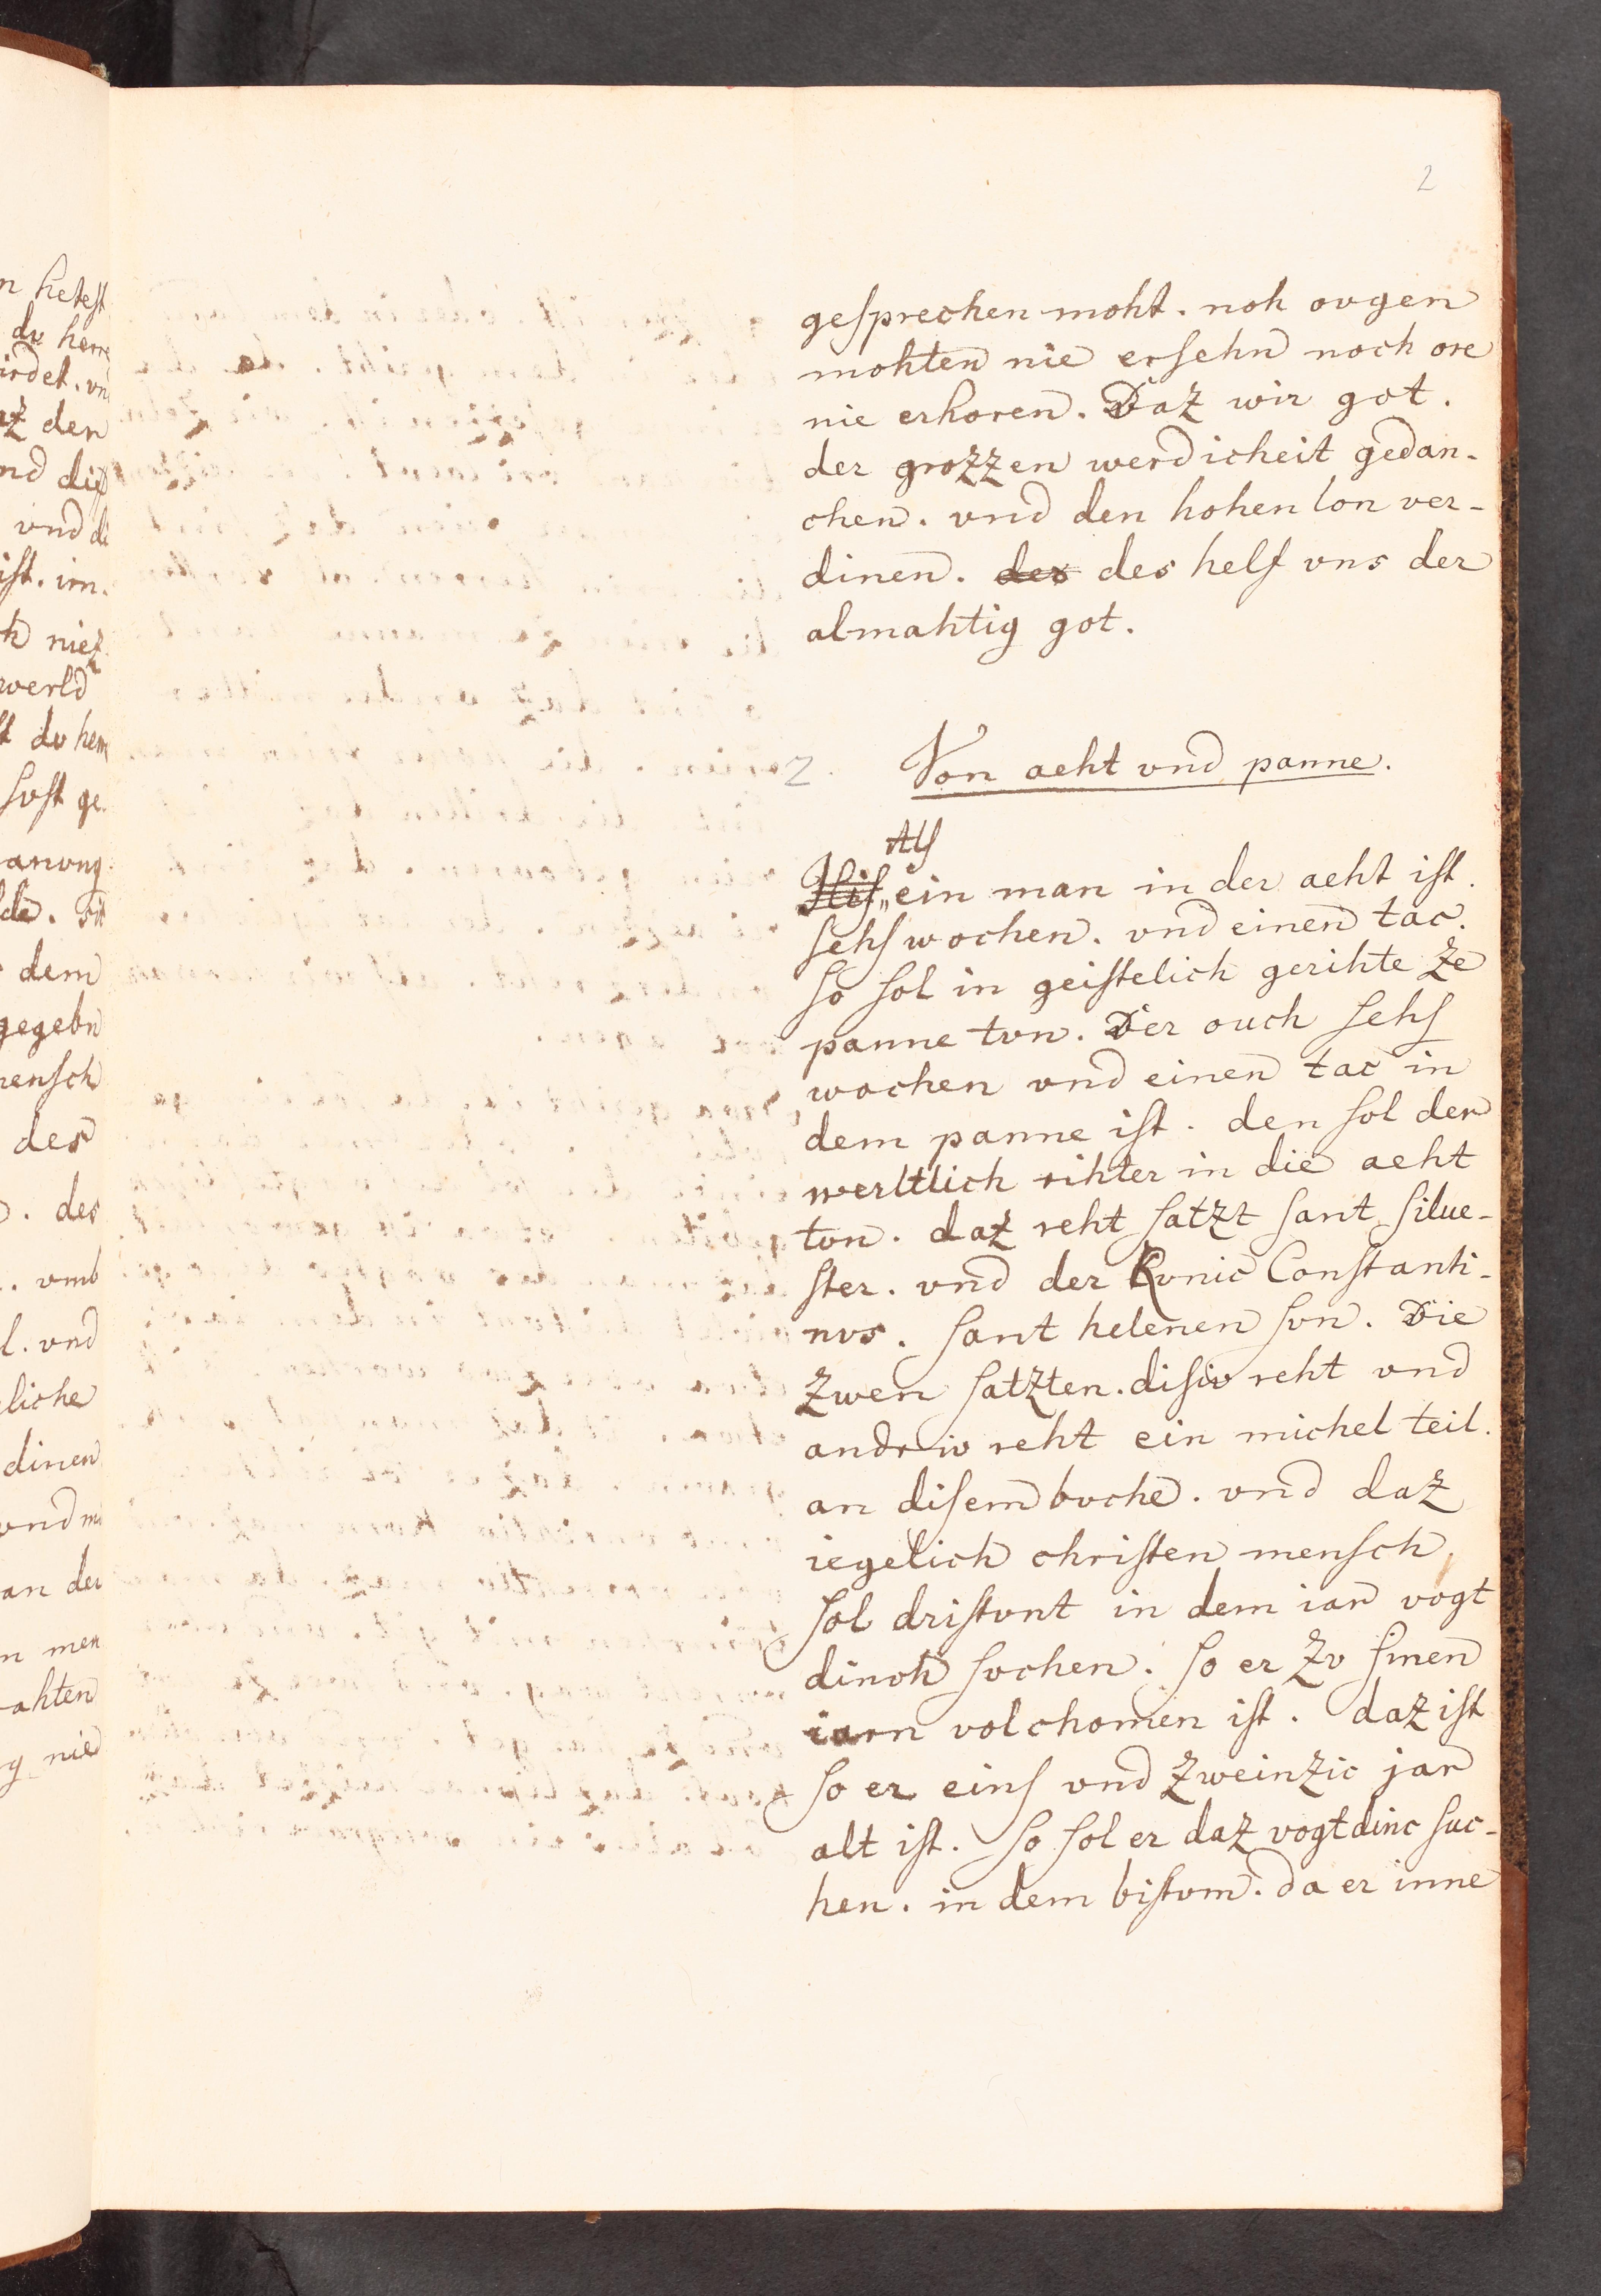 2
gesprechen moht. noh ovgen
mohten nie ersehn noch ore
nie erhoren. Daz wir got.
der grozzen werdicheit gedan-
chen. vnd den hohen lon ver-
dinen. des des helf vns der
almahtig got.
2. Von aeht vnd panne.
Als
ein man in der aeht ist.
sehs wochen. vnd einen tac.
so sol in geistelich gerihte ze
panne tvn. Der ouch sehs
wochen vnd einen tac in
dem panne ist. den sol der
werltlich rihter in die aeht
tvn. daz reht satzt sant silue-
ster. vnd der Kvnic Constanti-
nvs. sant helenen svn. Die
zwen satzten. disiv reht vnd
andriv reht ein michel teil.
an disem bvche. vnd daz
iegelich christen mensch.
sol dristvnt in dem iar vogt
dinch svchen. so er zv sinen
iarn volchomen ist. daz ist
so er eins vnd zweinzic jar
alt ist. so sol er daz vogtdinc suc-
hen. in dem bistvm. da er inne
n hetest
dv herre
irdet. vn
az den
nd die
vnd di
ist. im.
werld
svst ge.
anvng
dem
gegebn
mensch
des
. des
. vmb
l. vnd
liche
dinen
vnd
an der
n men
ahten
g nie